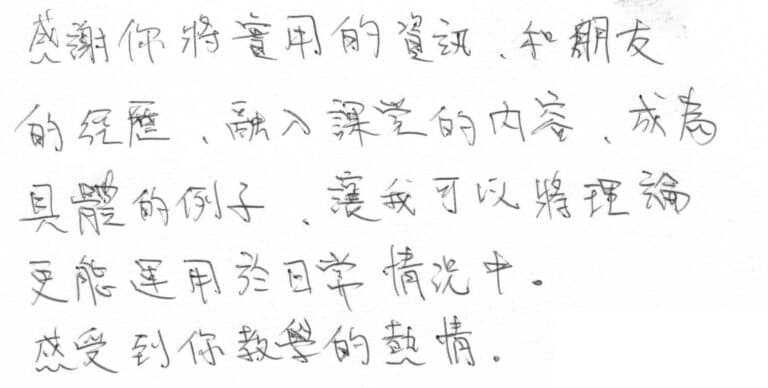 感謝你將實用的資訊、和朋友
的經歷、融入課堂的內容、成為
具體的例子、讓我可以將理論
更能運用於日常情況中。
感受到你教學的熱情。